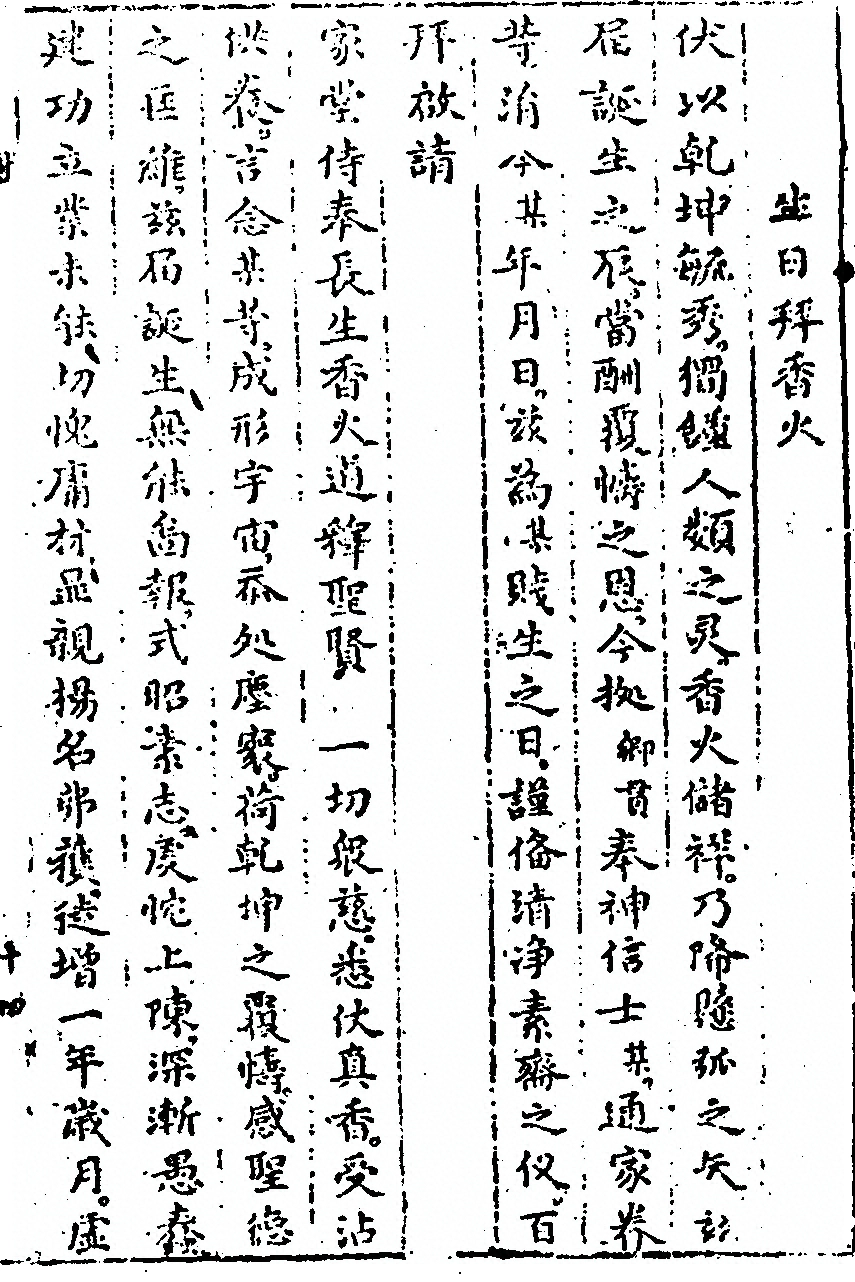 生日拜香火
伏以乾坤毓秀。獨鍾人類之灵。香火儲祥。乃降懸弧之矢
屆誕生之辰。當酬覆幬之恩。今拠鄉貫奉神信士某。通家眷
等涓今某年月日。兹為某賤生之日。謹俻清净素齋之仪。百
拜啟請
家堂侍奉長生香火道釋聖賢 一切眾慈。悉伏真香。受沾
供養。言念某等。成形宇宙。忝処塵寰。荷乾坤之覆幬。感聖德
之匡維。兹屆誕生。無能啚報。式昭素志。虔悃上陳。深漸愚蠢
建功立業未能。切愧庸材。显親揚名弗獲。徒增一年歲月。虛
十四